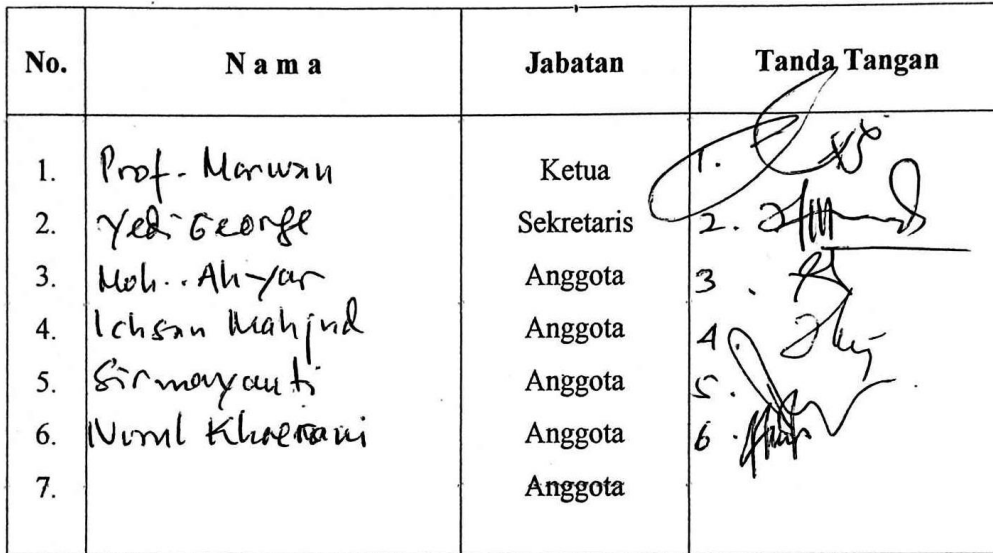 No. N a m a Jabatan Tanda Tangan
1. Prof. Marwan Ketua 1.
2. Yedi George Sekretaris 2.
3. Moh. Ahyar Anggota 3.
4. Ichsan Mahjud Anggota 4.
5. Sirmayanti Anggota 5.
6. Nurul Khaerani Anggota 6.
7. Anggota